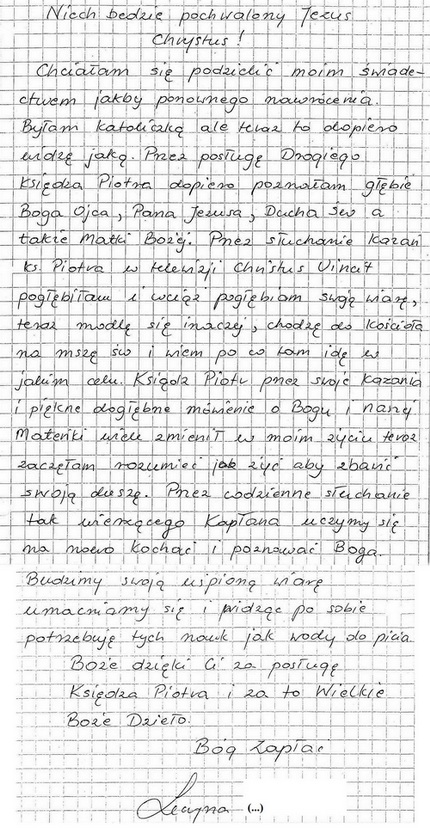 Niech będzie pochwalony Jezus
Chrystus!
Chciałam się podzielić moim świade-
ctwem jakby ponownego nawrócenia.
Byłam katoliczką ale teraz to dopiero
widzę jaką. Przez posługę Drogiego
Księdza Piotra dopiero poznałam głębie
Boga Ojca, Pana Jezusa, Ducha Św a
także Matki Bożej. Przez słuchanie kazań
ks. Piotra w telewizji Christus Vincit
pogłębiłam i wciąż pogłębiam swoją wiarę,
teraz modlę się inaczej, chodzę do kościoła
na mszę św i wiem po co tam idę w
jakim celu. Ksiądz Piotr przez swoje kazania
i piękne dogłębne mówienie o Bogu i naszej
Mateńki wiele zmienił w moim życiu teraz
zaczęłam rozumieć jak żyć aby zbawić
swoją duszę. Przez codzienne słuchanie
tak wierzącego Kapłana uczymy się
na nowo kochać i poznawać Boga.
Budzimy swoją uśpioną wiarę
umacniamy się i widząc po sobie
potrzebuję tych nauk jak wody do picia.
Boże dzięki Ci za posługę
Księdza Piotra i za to Wielkie
Boże Dzieło.
Bóg Zapłać
(...)